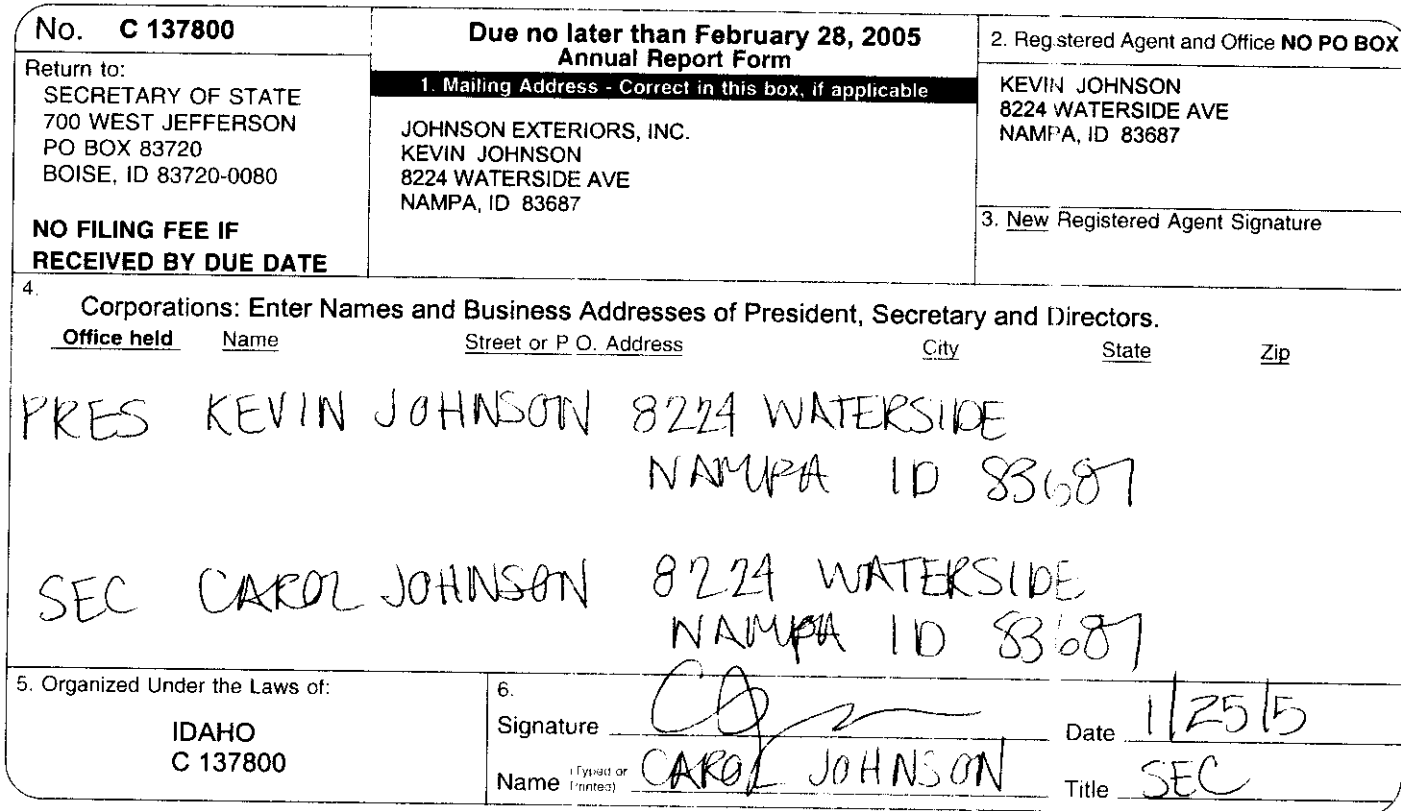 No. C 137800
Return to:
SECRETARY OF STATE
700 WEST JEFFERSON
PO BOX 83720
BOISE, ID 83720-0080
NO FILING FEE IF
RECEIVED BY DUE DATE
Due no later than February 28, 2005
Annual Report Form
1. Mailing Address - Correct in this box, if applicable
JOHNSON EXTERIORS, INC.
KEVIN JOHNSON
8224 WATERSIDE AVE
NAMPA, ID 83687
2. Registered Agent and Office NO PO BOX
KEVIN JOHNSON
8224 WATERSIDE AVE
NAMPA, ID 83687
3. New Registered Agent Signature
4.
Corporations: Enter Names and Business Addresses of President, Secretary and Directors.
Office held Name Street or P.O. Address City State Zip
PRES KEVIN JOHNSON 8224 WATERSIDE
NAMPA ID 83687
SEC CAROL JOHNSON 8224 WATERSIDE
NAMPA ID 83687
5. Organized Under the Laws of:
IDAHO
C 137800
6.
Signature Date 1/25/5
Name (Typed or Printed) CAROL JOHNSON Title SEC